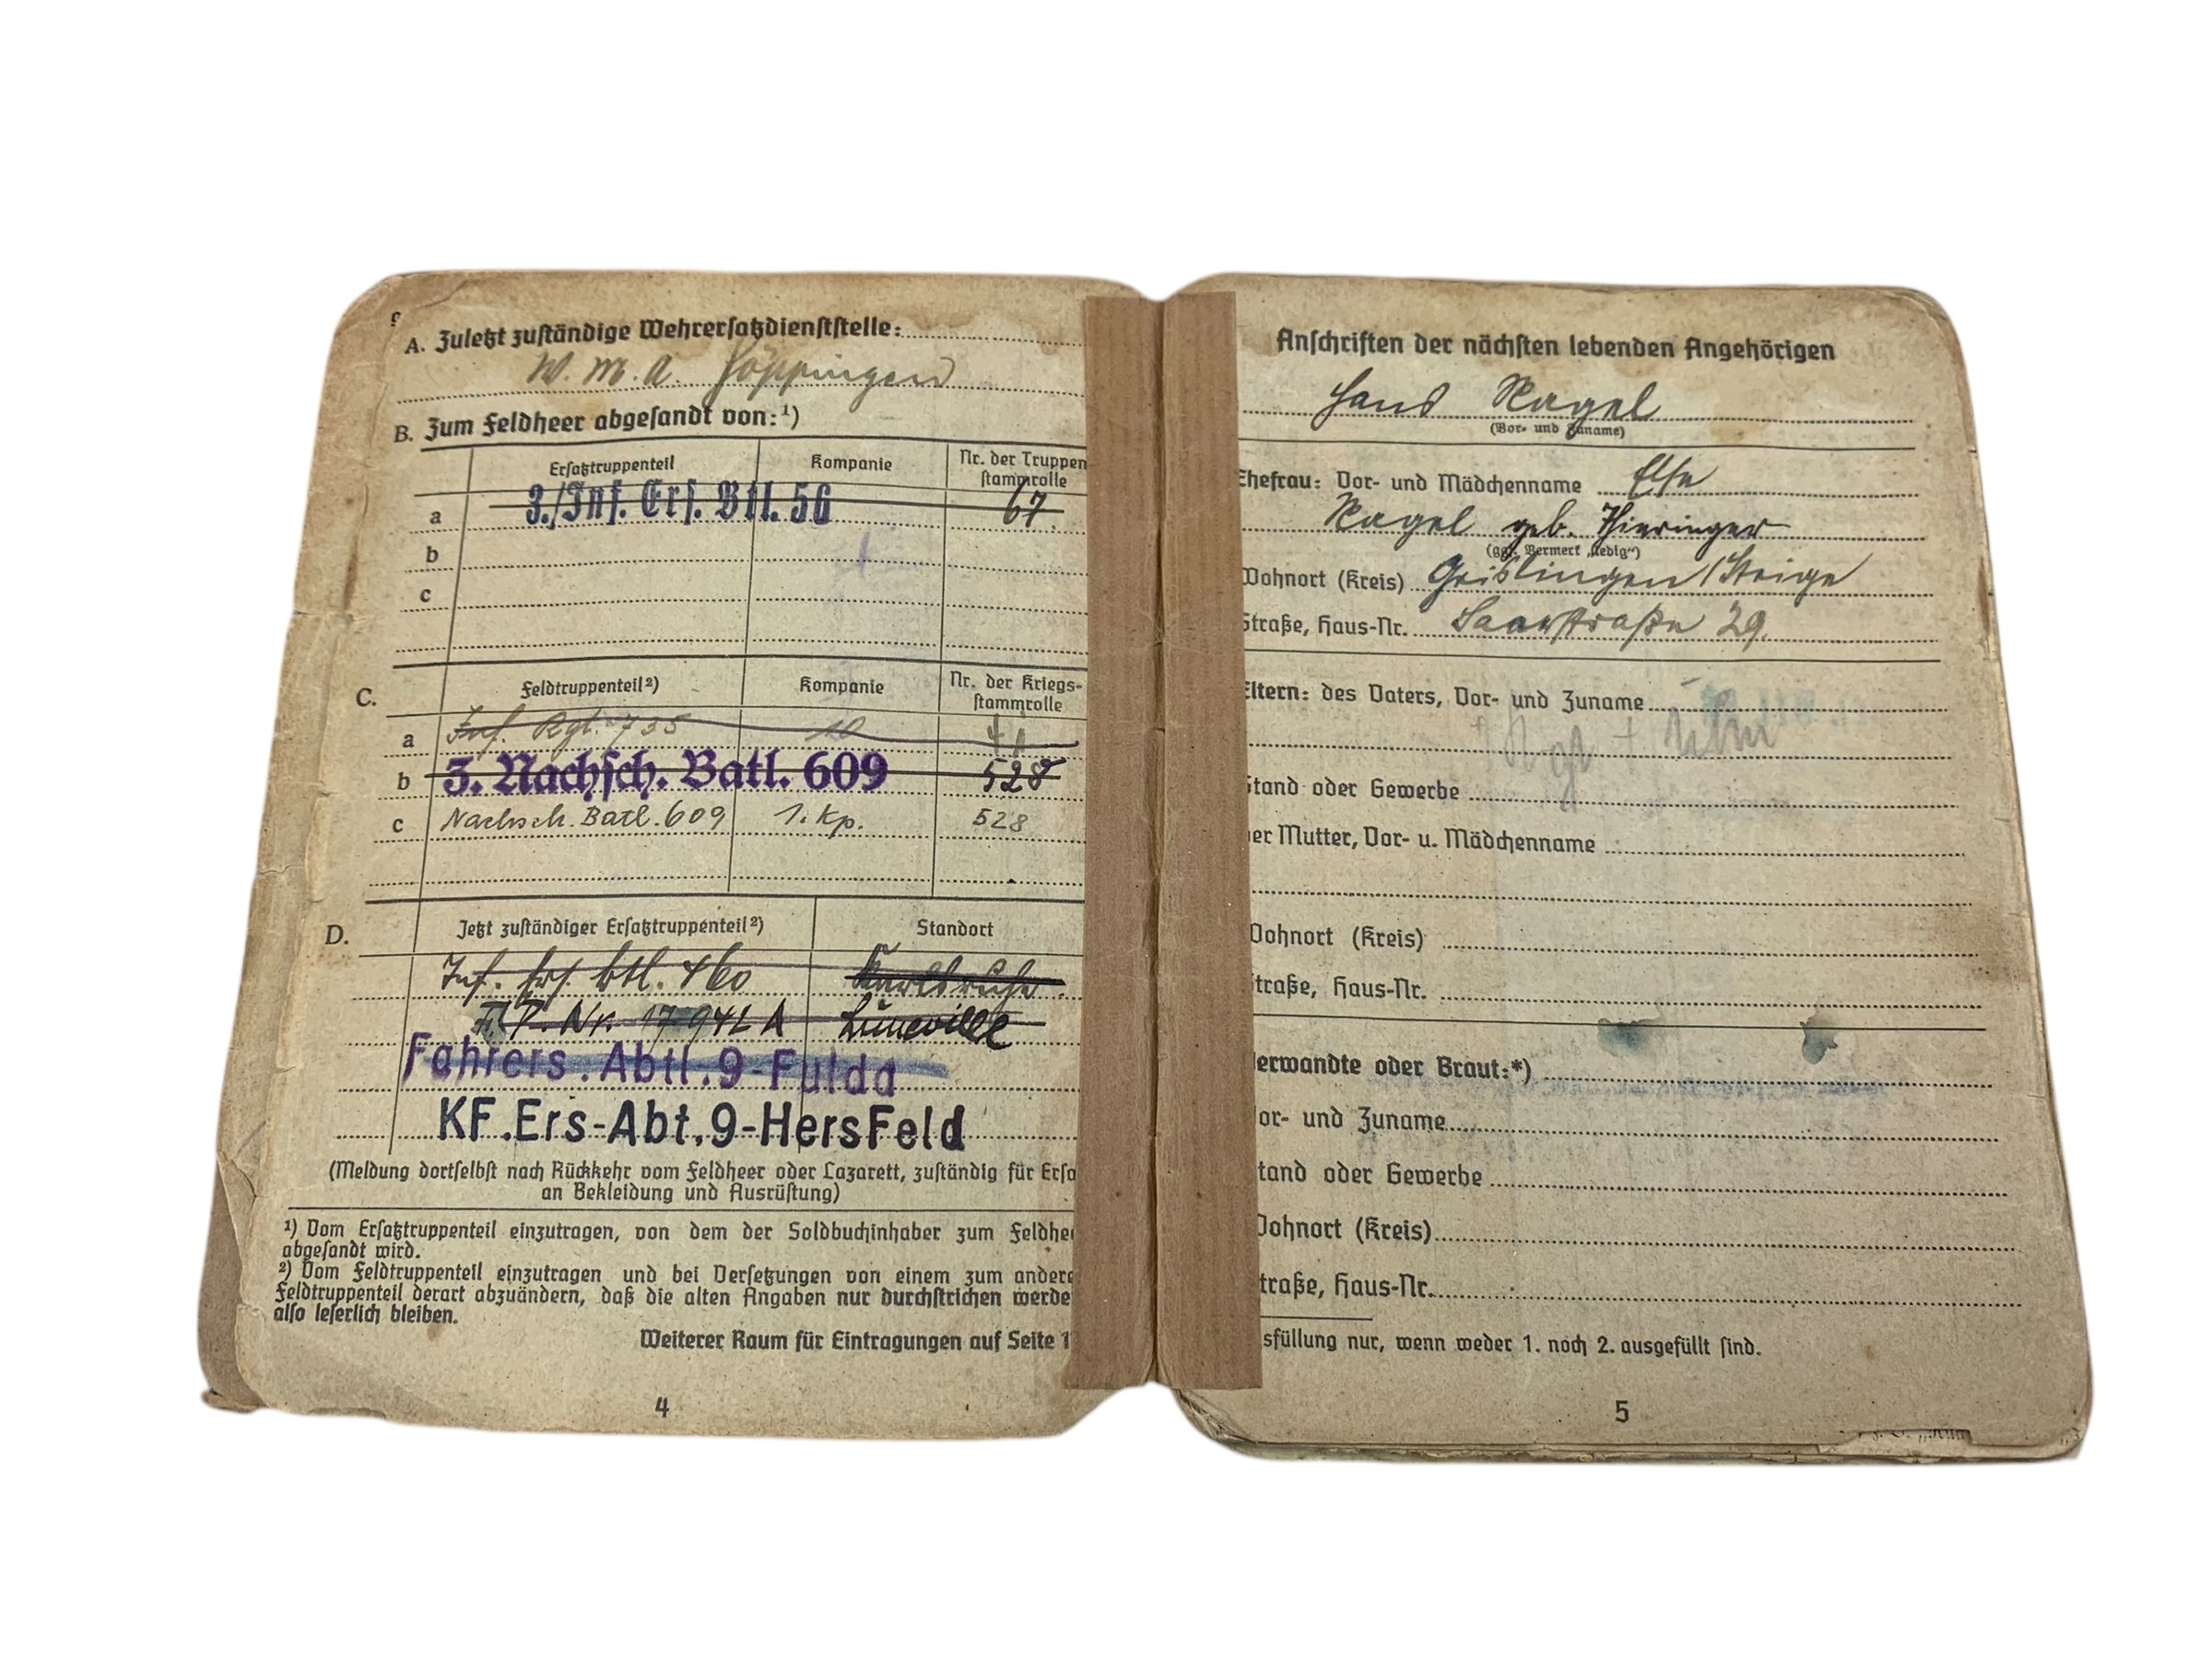 A. Zuletzt zuständige Wehrersatzdienststelle:
W. M. A. Göppingen
B. Zum Feldheer abgesandt von:¹)
Ersatztruppenteil Kompanie Nr. der Truppen
stammrolle
a 3./Inf. Ers. Btl. 56 67.
b
c
C. Feldtruppenteil²) Kompanie Nr. der Kriegs-
stammrolle
a Inf. Rgt. 735 10
b 3. Nachsch. Batl. 609 528
c Nachsch. Batl. 609 1. Kp. 528
D. Jetzt zuständiger Ersatztruppenteil²) Standort
Inf. Ers. Btl. 460 Karlsruhe.
F. P. Nr. 17942 A Luneville
Fahrers. Abtl. 9-Fulda
KF.Ers-Abt.9-HersFeld
(Meldung dortselbst nach Rückkehr vom Feldheer oder Lazarett, zuständig für Ersa
an Bekleidung und Ausrüstung)
¹) Vom Ersatztruppenteil einzutragen, von dem der Soldbuchinhaber zum Feldhee
abgesandt wird.
²) Vom Feldtruppenteil einzutragen und bei Versetzungen von einem zum andere
Feldtruppenteil derart abzuändern, daß die alten Angaben nur durchstrichen werde
also leserlich bleiben.
Weiterer Raum für Eintragungen auf Seite 1
4
Anschriften der nächsten lebenden Angehörigen
Hans Nagel
(Vor- und Zuname)
Ehefrau: Vor- und Mädchenname Else
Nagel geb. Thieringer
(ggf. Vermerk „ledig“)
Wohnort (Kreis) Geislingen/Steige
Straße, Haus-Nr. Saarstraße 29.
Eltern: des Vaters, Vor- und Zuname
Stand oder Gewerbe
der Mutter, Vor- u. Mädchenname
Wohnort (Kreis)
Straße, Haus-Nr.
Verwandte oder Braut:*)
Vor- und Zuname
Stand oder Gewerbe
Wohnort (Kreis)
Straße, Haus-Nr.
sfüllung nur, wenn weder 1. noch 2. ausgefüllt sind.
5